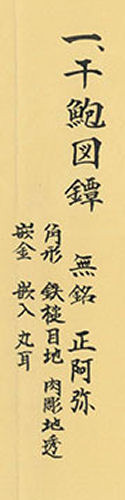 一、干鮑図鐔　無銘　正阿弥
角形　鉄槌目地　肉彫地透
嵌金　嵌入　丸耳